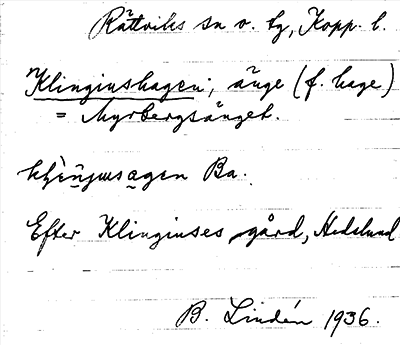 Rättviks sn o. by, Kopp. l.
Klinginshagen, änge (f. hage)
= Myrbergsänget.
Ba.
Efter Klinginses gård, Hedslund
B. Lindén 1936.